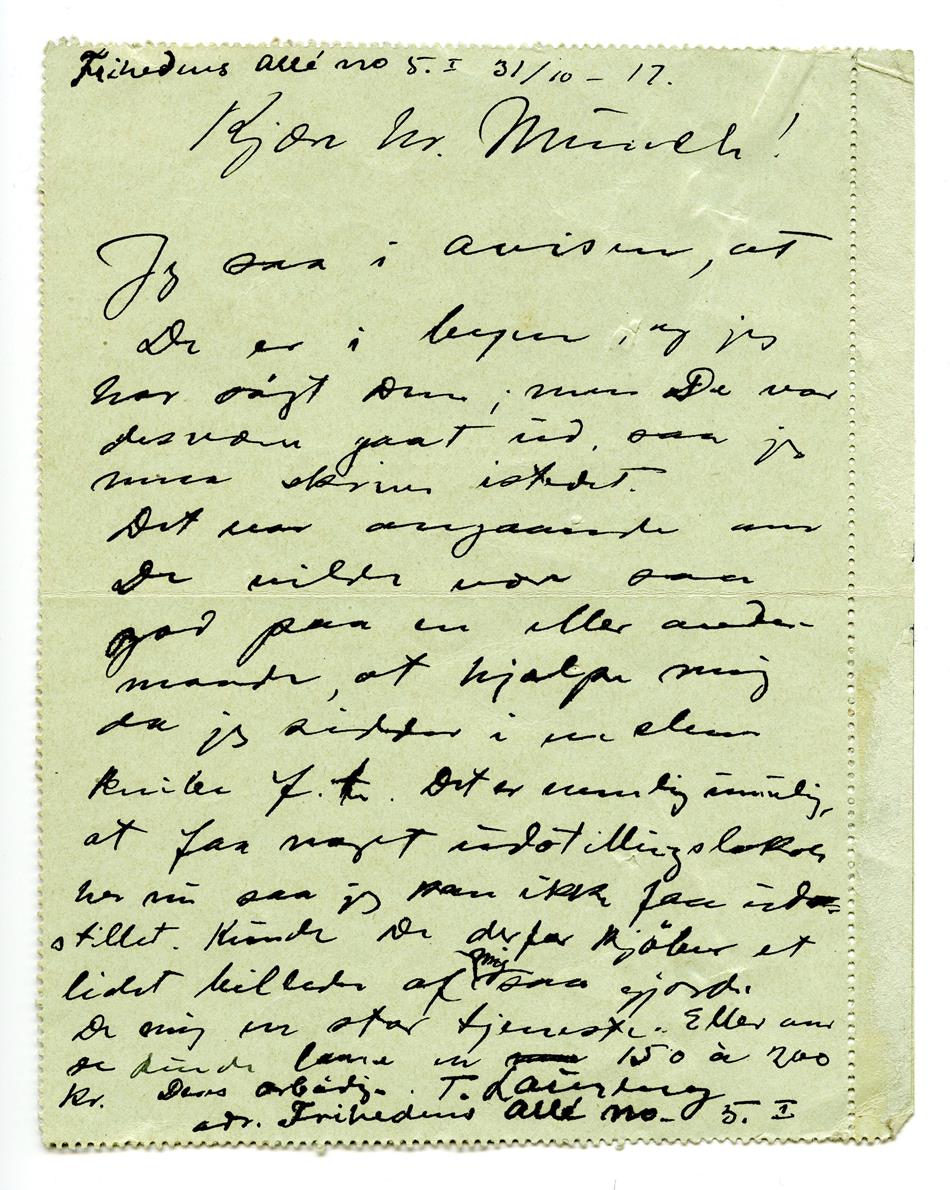 Frihedens Allé no 5. I 31/10 – 17.
Kjære hr. Münch!
Jeg saa i avisen, at
De er i byen, og jeg
har søgt Dem; men De var
desværre gaat ud, saa jeg
maa skrive istedet.
Det var angaaende om
De vilde være saa
god paa en eller anden
maade, at hjælpe mig
da jeg sidder i en slem
knibe f.t. Det er nemlig umulig,
at faa noget udstillingslokale
her nu saa jeg kan ikke faa ud-
stillet. Kunde De derfor kjøbe et
lidet billede af mig saa gjorde
De mig en stor tjeneste. Eller om
De kunde laane en 150 à 200
kr. Deres ærbødige. T. Lauritz
adr. Frihedens Allé no. 5. I